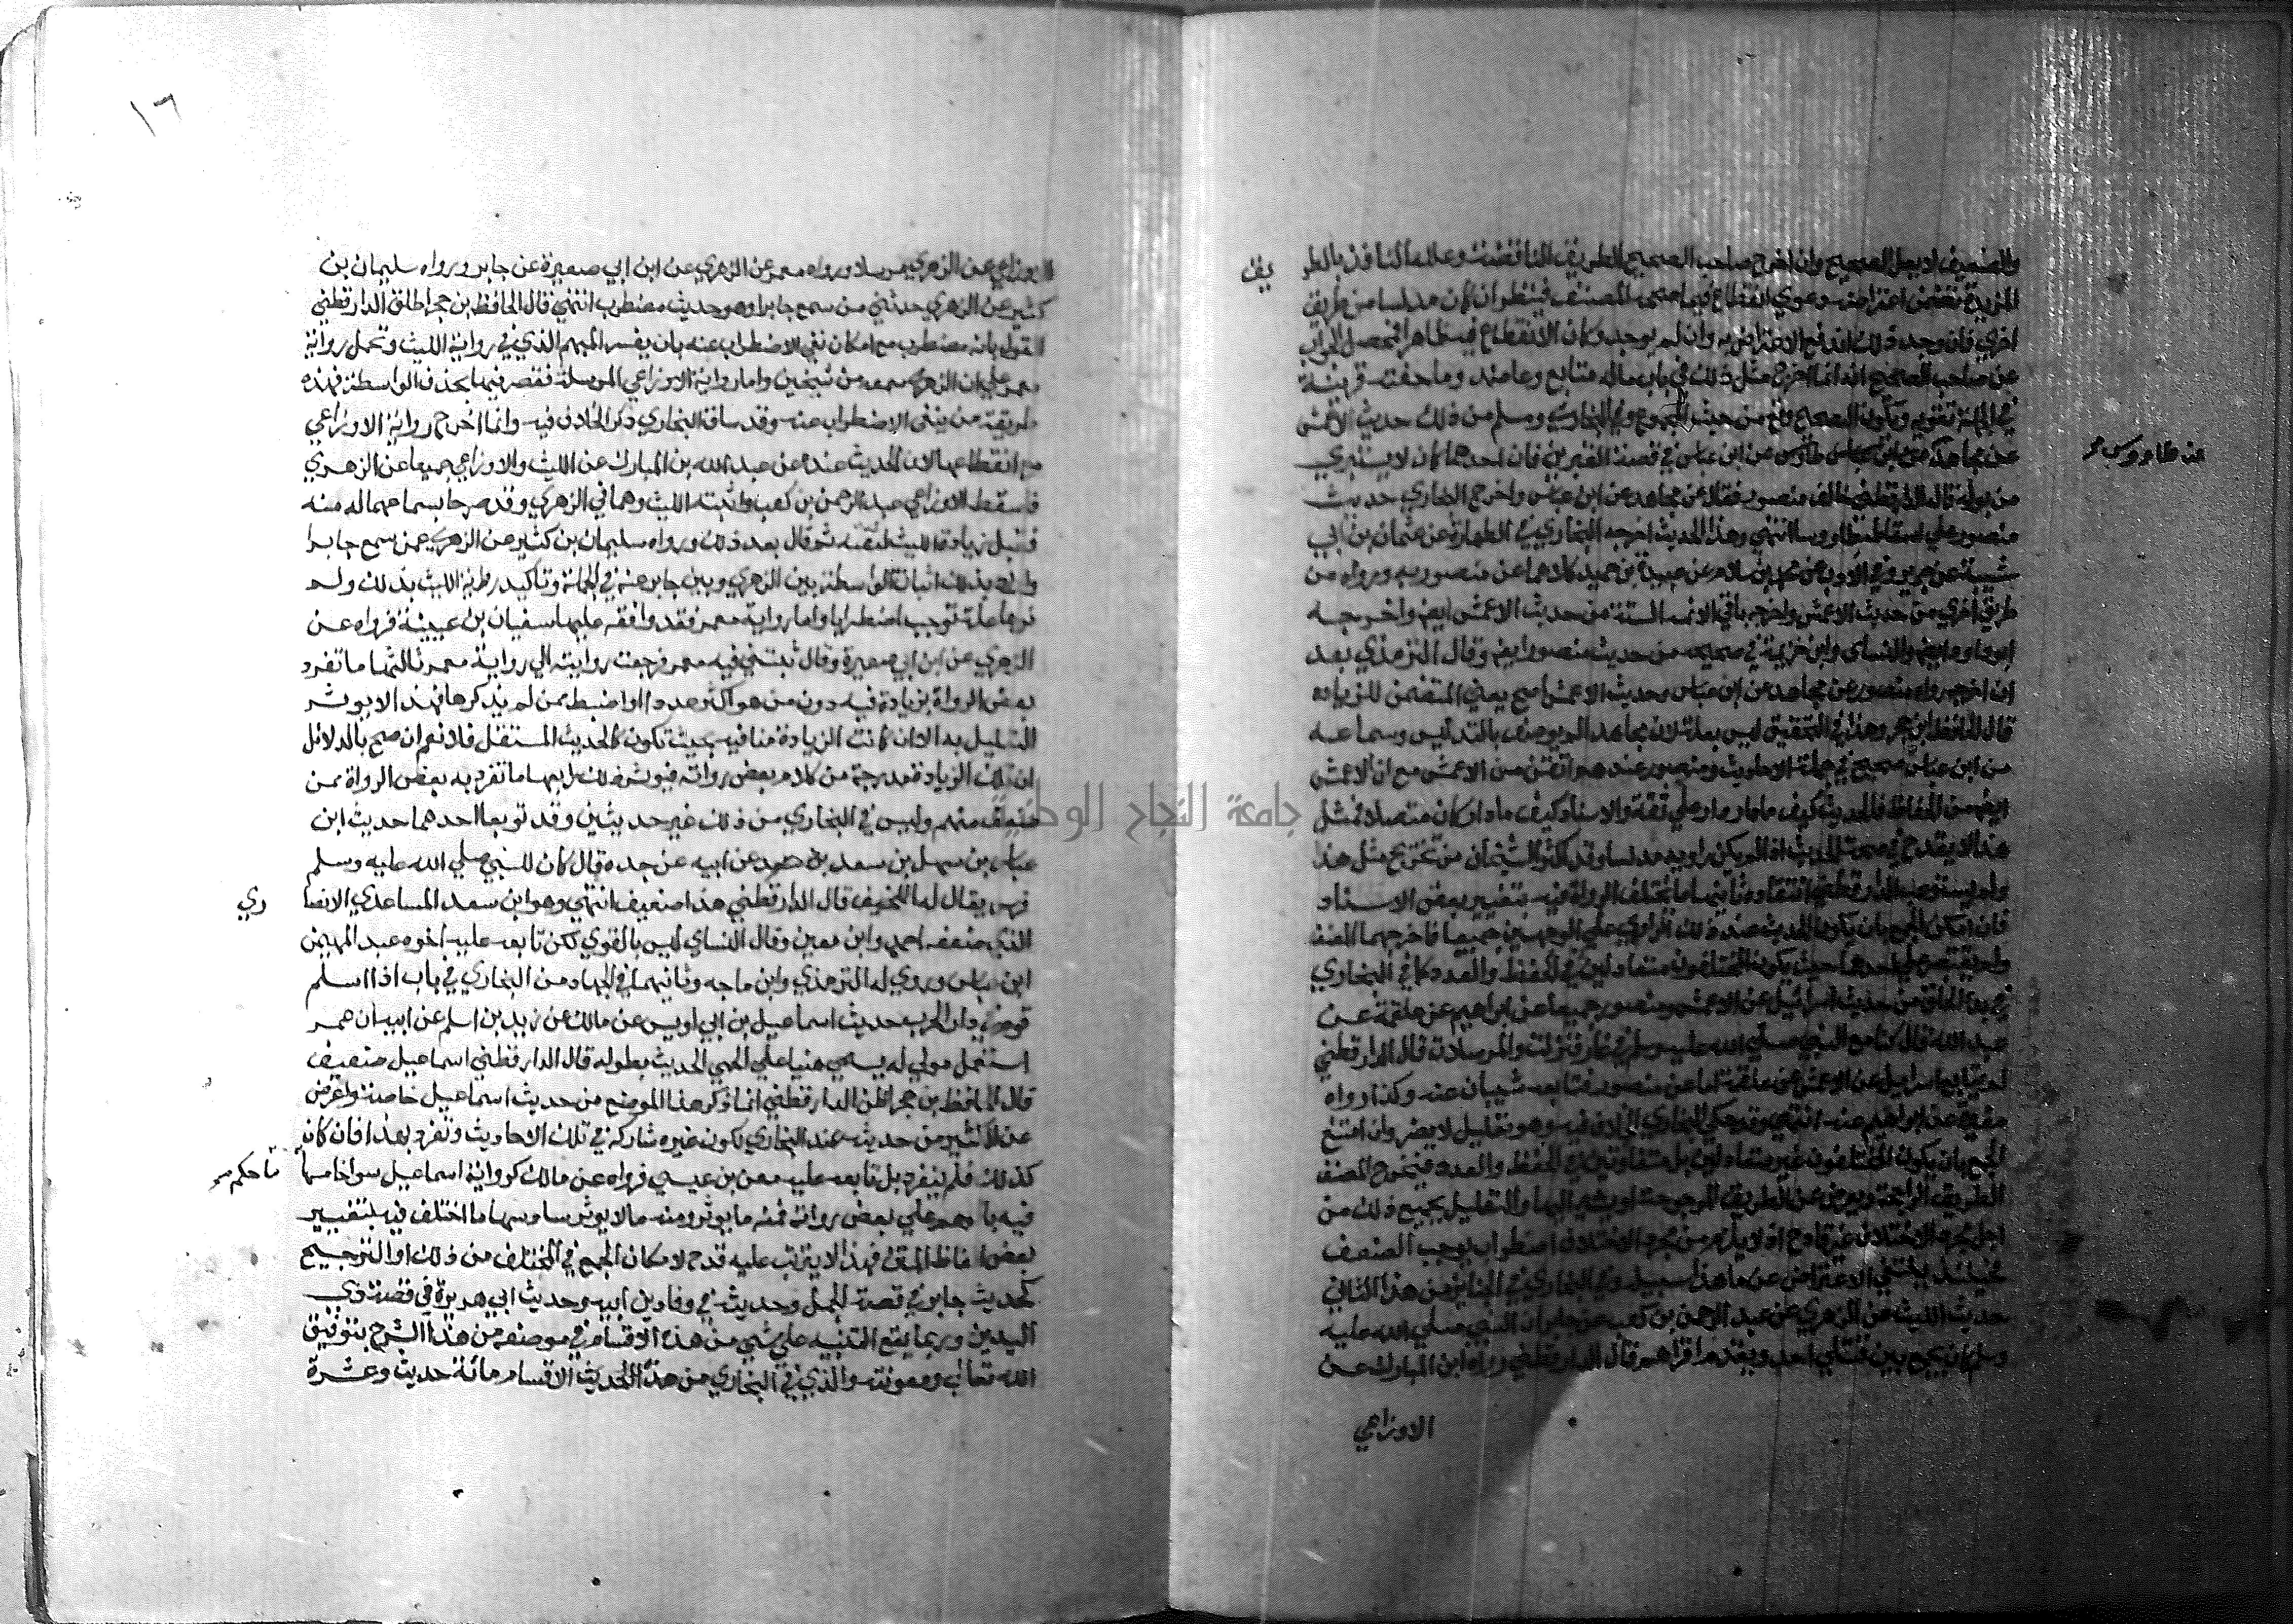 والضعيف لا يعل الصحيح وان اخرج صاحب الصحيح الطريق الناقضة وعلله الناقد بالطريق
المزيدة تضمن اعتراضه دعوي انقطاع فيما صححه المصنف فينظر ان كان مدلسا من طريق
اخري فان وجد ذلك اندفع الاعتراض به وان لم يوجد وكان الانقطاع فيه ظاهرا فمحصل الجواب
عن صاحب الصحيح انه انما اخرج مثل ذلك في باب ماله متابع وعاضد وما حفته قرينة
في الجملة تقويه ويكون التصحيح وقع من حيث المجموع وفي البخاري ومسلم من ذلك حديث الاعمش
عن مجاهد عن طاوس عن ابن عباس في قصة القبرين فان احدهما كان لا يستبري
عن طاووس
من بوله قال الدارقطني خالف منصور فقال عن مجاهد عن ابن عباس واخرج البخاري حديث
منصور علي اسقاط طاووسا انتهي وهذا الحديث اخرجه البخاري في الطهارة عن عثمان بن ابي
شيبة عن جرير وفي الادب عن محمد بن سلام عن عبيدة بن حميد كلاهما عن منصور به ورواه من
طريق اخري من حديث الاعمش واخرجه باقي الائمة الستة من حديث الاعمش ايضا واخرجه
ابوداود ايضا والنساي وابن خزيمة في صحيحه من حديث منصور ايضا وقال الترمذي بعد
ان اخرجه رواه منصور عن مجاهد عن ابن عباس وحديث الاعمش اصح يعني المتضمن للزيادة
قال الحافظ ابن حجر وهذا في التحقيق ليس بعلة لان مجاهدا لم يوصف بالتدليس وسماعه
من ابن عباس صحيح في جملة الاحاديث ومنصور عندهم اتقن من الاعمش مع ان الاعمش
ايضا من الحفاظ فالحديث كيف ما دار دار علي ثقة والاسناد كيف ما دار كان متصلا فمثل
هذا لا يقدح في صحة الحديث اذا لم يكن راويه مدلسا وقد اكثر الشيخان من تخريج مثل هذا
ولم يستوعب الدارقطني انتقاده ثانيها ما تختلف الرواة فيه بتغيير بعض الاسناد
فان امكن الجمع بان يكون الحديث عند ذلك الراوي علي الوجهين جميعا فاخرجهما المصنف
ولم يقتصر علي احدهما حيث يكون المختلفون متعادلين في الحفظ والعدد كما في البخاري
في بدء الخلق من حديث اسرائيل عن الاعمش ومنصور جميعا عن ابراهيم عن علقمة عن
عبد الله قال كنا مع النبي صلي الله عليه وسلم في غار فنزلت والمرسلات قال الدارقطني
لم يتابع اسرائيل عن الاعمش عن علقمة اما عن منصور فتابعه شيبان عنه وكذا رواه
مغيرة عن ابراهيم عنه انتهي وقد حكي البخاري الخلاف فيه وهو تعليل لا يضر وان امتنع
الجمع بان يكون المختلفون غير متعادلين بل متفاوتين في الحفظ والعدد فيخرج المصنف
الطريق الراجحة ويعرض عن الطريق المرجوحة او يشير اليها والتعليل بجميع ذلك من
اجل مجرد الاختلاف غير قادح اذ لا يلزم من مجرد الاختلاف اضطراب يوجب الضعف
فحينئذ ينتفي الاعتراض عن ما هذا سبيله وفي البخاري في الجنايز من هذا الثاني
حديث الليث عن الزهري عن عبد الرحمن بن كعب عن جابر ان النبي صلي الله عليه
وسلم كان يجمع بين قتلي احد ويقدم اقراهم قال الدارقطني رواه ابن المبارك عن
الاوزاعي
١٦
الاوزاعي عن الزهري مرسلا ورواه معمر عن الزهري عن ابن ابي صعيرة عن جابر ورواه سليمان بن
كثير عن الزهري حدثني من سمع جابرا وهو حديث مضطرب انتهي قال الحافظ بن حجر اطلق الدارقطني
القول بانه مضطرب مع امكان نفي الاضطراب عنه بان يفسر المبهم الذي في رواية الليث وتحمل رواية
معمر علي ان الزهري سمعه من شيخين واما رواية الاوزاعي المرسلة فقصر فيها بحذف الواسطة فهذه
طريقة من ينفي الاضطراب عنه وقد ساق البخاري ذكر الخلاف فيه وانما اخرج رواية الاوزاعي
مع انقطاعها لان الحديث عنده عن عبد الله بن المبارك عن الليث والاوزاعي جميعا عن الزهري
فاسقط الاوزاعي عبد الرحمن بن كعب واثبته الليث وهما في الزهري وقد صرحا بسماعهما له منه
فقبل زيادة الليث لثقته ثم قال بعد ذلك ورواه سليمان بن كثير عن الزهري عمن سمع جابرا
واراد بذلك اثبات الواسطة بين الزهري وبين جابر عنه في الجملة وتاكيد رواية الليث بذلك ولم
نرها علة توجب اضطرابا واما رواية معمر فقد وافقه عليها سفيان بن عيينة فرواه عن
الزهري عن ابن ابي صعيرة وقال ثبتني فيه معمر فرجعت روايته الي رواية معمر ثالثها ما تفرد
بعض الرواة بزيادة فيه دون من هو اكثر عددا او اضبط ممن لم يذكرها فهذا لا يوثر
التعليل به الا ان كانت الزيادة منافيه بحيث تكون كالحديث المستقل فلا نعم ان صح بالدلائل
ان تلك الزيادة مدرجة من كلام بعض رواته فيوثر ذلك رابعها ما تفرد به بعض الرواة ممن
ضعف منهم وليس في البخاري من ذلك غير حديثين وقد توبعا احدهما حديث ابن
عباس بن سهل بن سعد عن ابيه عن جده قال كان للنبي صلي الله عليه وسلم
فرس يقال له اللخيف قال الدارقطني هذا ضعيف انتهي وهو ابن سعد الساعدي الانصاري
الذي ضعفه احمد وابن معين وقال النساي ليس بالقوي لكن تابعه عليه اخوه عبد المهيمن
ابن عباس وروي له الترمذي وابن ماجه وثانيهما في الجهاد من البخاري في باب اذا اسلم
قوم في دار الحرب حديث اسماعيل بن ابي اويس عن مالك عن زيد بن اسلم عن ابيه ان عمر
استعمل مولي له يسمي هنيا علي الحمي الحديث بطوله قال الدارقطني اسماعيل ضعيف
قال الحافظ بن حجر اظن الدارقطني انما ذكر هذا الموضع من حديث اسماعيل خاصة واعرض
عن الكثير من حديثه عند البخاري لكون غيره شاركه في تلك الاحاديث وتفرد بهذا فان كان
كذلك فلم ينفرد بل تابعه عليه معن بن عيسي فرواه عن مالك كرواية اسماعيل سوا خامسها ما حكم
فيه بالوهم علي بعض رواته فمنه ما يوثر ومنه ما لا يوثر سادسها ما اختلف فيه بتغيير
بعض الفاظ المتن فهذا لا يترتب عليه قدح لامكان الجمع في المختلف من ذلك او الترجيح
كحديث جابر في قصة الجمل وحديثه في وفا دين ابيه وحديث ابي هريرة في قصة ذي
اليدين وربما يقع التنبيه علي شي من هذه الاقسام في موضعه من هذا الشرح بتوفيق
الله تعالي ومعونته والذي في البخاري من هذه الاقسام مائة حديث وعشرة